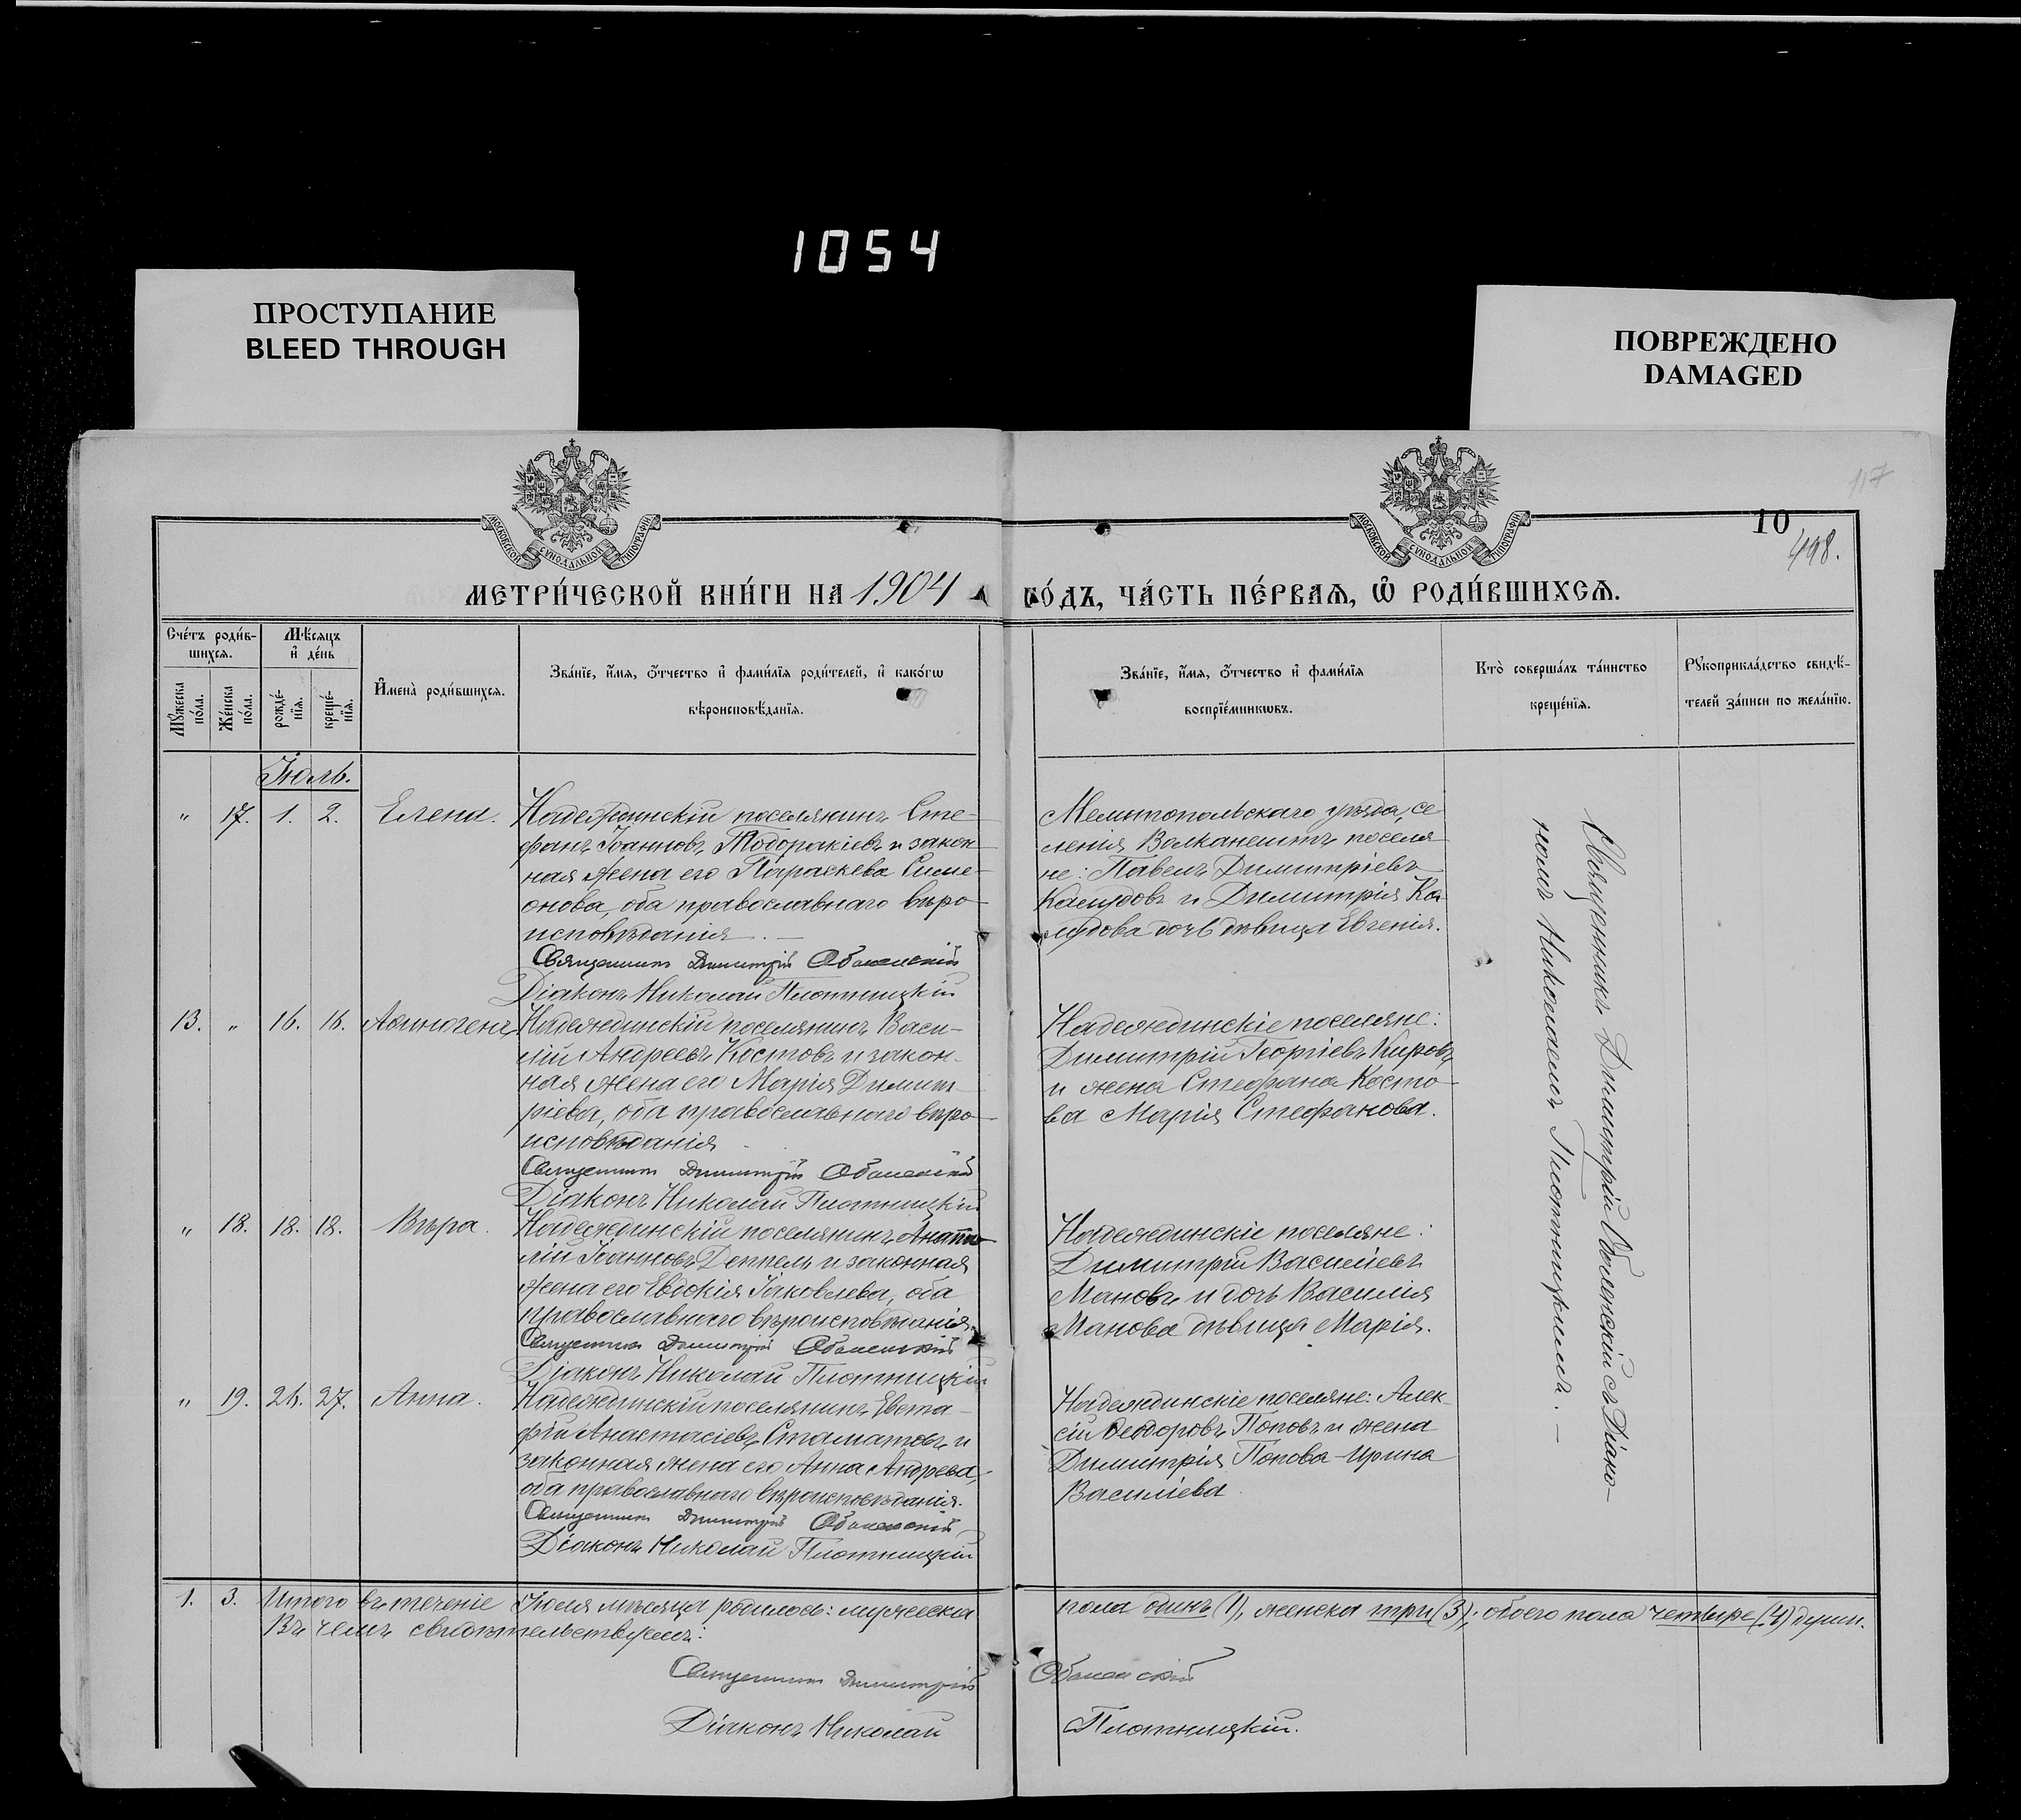 1054
ПРОСТУПАНИЕ
BLEED THROUGH
ПОВРЕЖДЕНО
DAMAGED
117
МОСКОВСКОЙ СѴНОДАЛЬНОЙ ТИПОГРАФІИ
МОСКОВСКОЙ СѴНОДАЛЬНОЙ ТИПОГРАФІИ
10
498.
МЕТРИ́ЧЕСКОЙ КНИ́ГИ НА 1904
ГО́ДЪ, ЧА́СТЬ ПЕ́РВАѦ, Ѿ РОДИ́ВШИХСѦ.
Сче́тъ роди́в-
шихсѧ.
Мѣ́сѧцъ
и҆ де́нь
Мꙋ́жеска
по́ла.
Же́нска
по́ла.
рожде́-
нїѧ.
креще́-
нїѧ.
И҆мена̀ роди́вшихсѧ.
Зва́нїе, и҆́мѧ, ѻ҆́тчество и҆ фами́лїѧ роди́телей, и҆ како́гѡ
вѣроисповѣ́данїѧ.
Зва́нїе, и҆́мѧ, ѻ҆́тчество и҆ фами́лїѧ
воспрїе́мникѡвъ.
Кто̀ соверша́лъ та́инство
креще́нїѧ.
Рꙋкоприкла́дство свидѣ́-
телей за́писи по жела́нїю.
Іюль.
" 17. 1. 2. Елена.
Надеждинскій поселянинъ Сте-
фанъ Іоанновъ Тодоракіевъ и закон
ная жена его Параскева Симе-
онова, оба православнаго вѣро
исповѣданія. —
Священникъ Димитрій Оболенскій
Діаконъ Николай Плотницкій
Мелитопольскаго уѣзда, се
ленія Валканешты поселя
не: Павелъ Димитріевъ
и Димитрія Ка
дочь дѣвица Евгенія.
13. " 16. 16. Аѳиногенъ
Надеждинскій поселянинъ Васи-
лій Андреевъ Костовъ и закон-
ная жена его Марія Димит-
ріева, оба православнаго вѣро
исповѣданія
Священникъ Димитрій Оболенскій
Діаконъ Николай Плотницкій
Надеждинскіе поселяне:
Димитрій Георгіевъ Кировъ
и жена Стефана Косто-
ва Марія Стефанова.
" 18. 18. 18. Вѣра.
Надеждинскій поселянинъ Анато-
лій Іоанновъ Деппель и законная
жена его Евдокія Іаковлева, оба
православнаго вѣроисповѣданія.
Священникъ Димитрій Оболенскій
Діаконъ Николай Плотницкій
Надеждинскіе поселяне:
Димитрій Василіевъ
Мановъ и дочь Василія
Манова дѣвица Марія.
" 19. 26. 27. Анна.
Надеждинскій поселянинъ Евста-
фій Анастасіевъ Стаматовъ и
законная жена его Анна Андреева,
оба православнаго вѣроисповѣданія.
Священникъ Димитрій Оболенскій
Діаконъ Николай Плотницкій
Надеждинскіе поселяне: Алек-
сій Ѳеодоровъ Поповъ и жена
Димитрія Попова Ирина
Василіева
Священникъ Димитрій Оболенскій съ Діако-
номъ Николаемъ Плотницкимъ. —
1. 3. Итого въ теченіе Іюля мѣсяца родилось: мужеска
пола одинъ (1), женска три (3); обоего пола четыре (4) души.
Въ чемъ свидѣтельствуемъ:
Священникъ Димитрій Оболенскій
Діаконъ Николай Плотницкій.